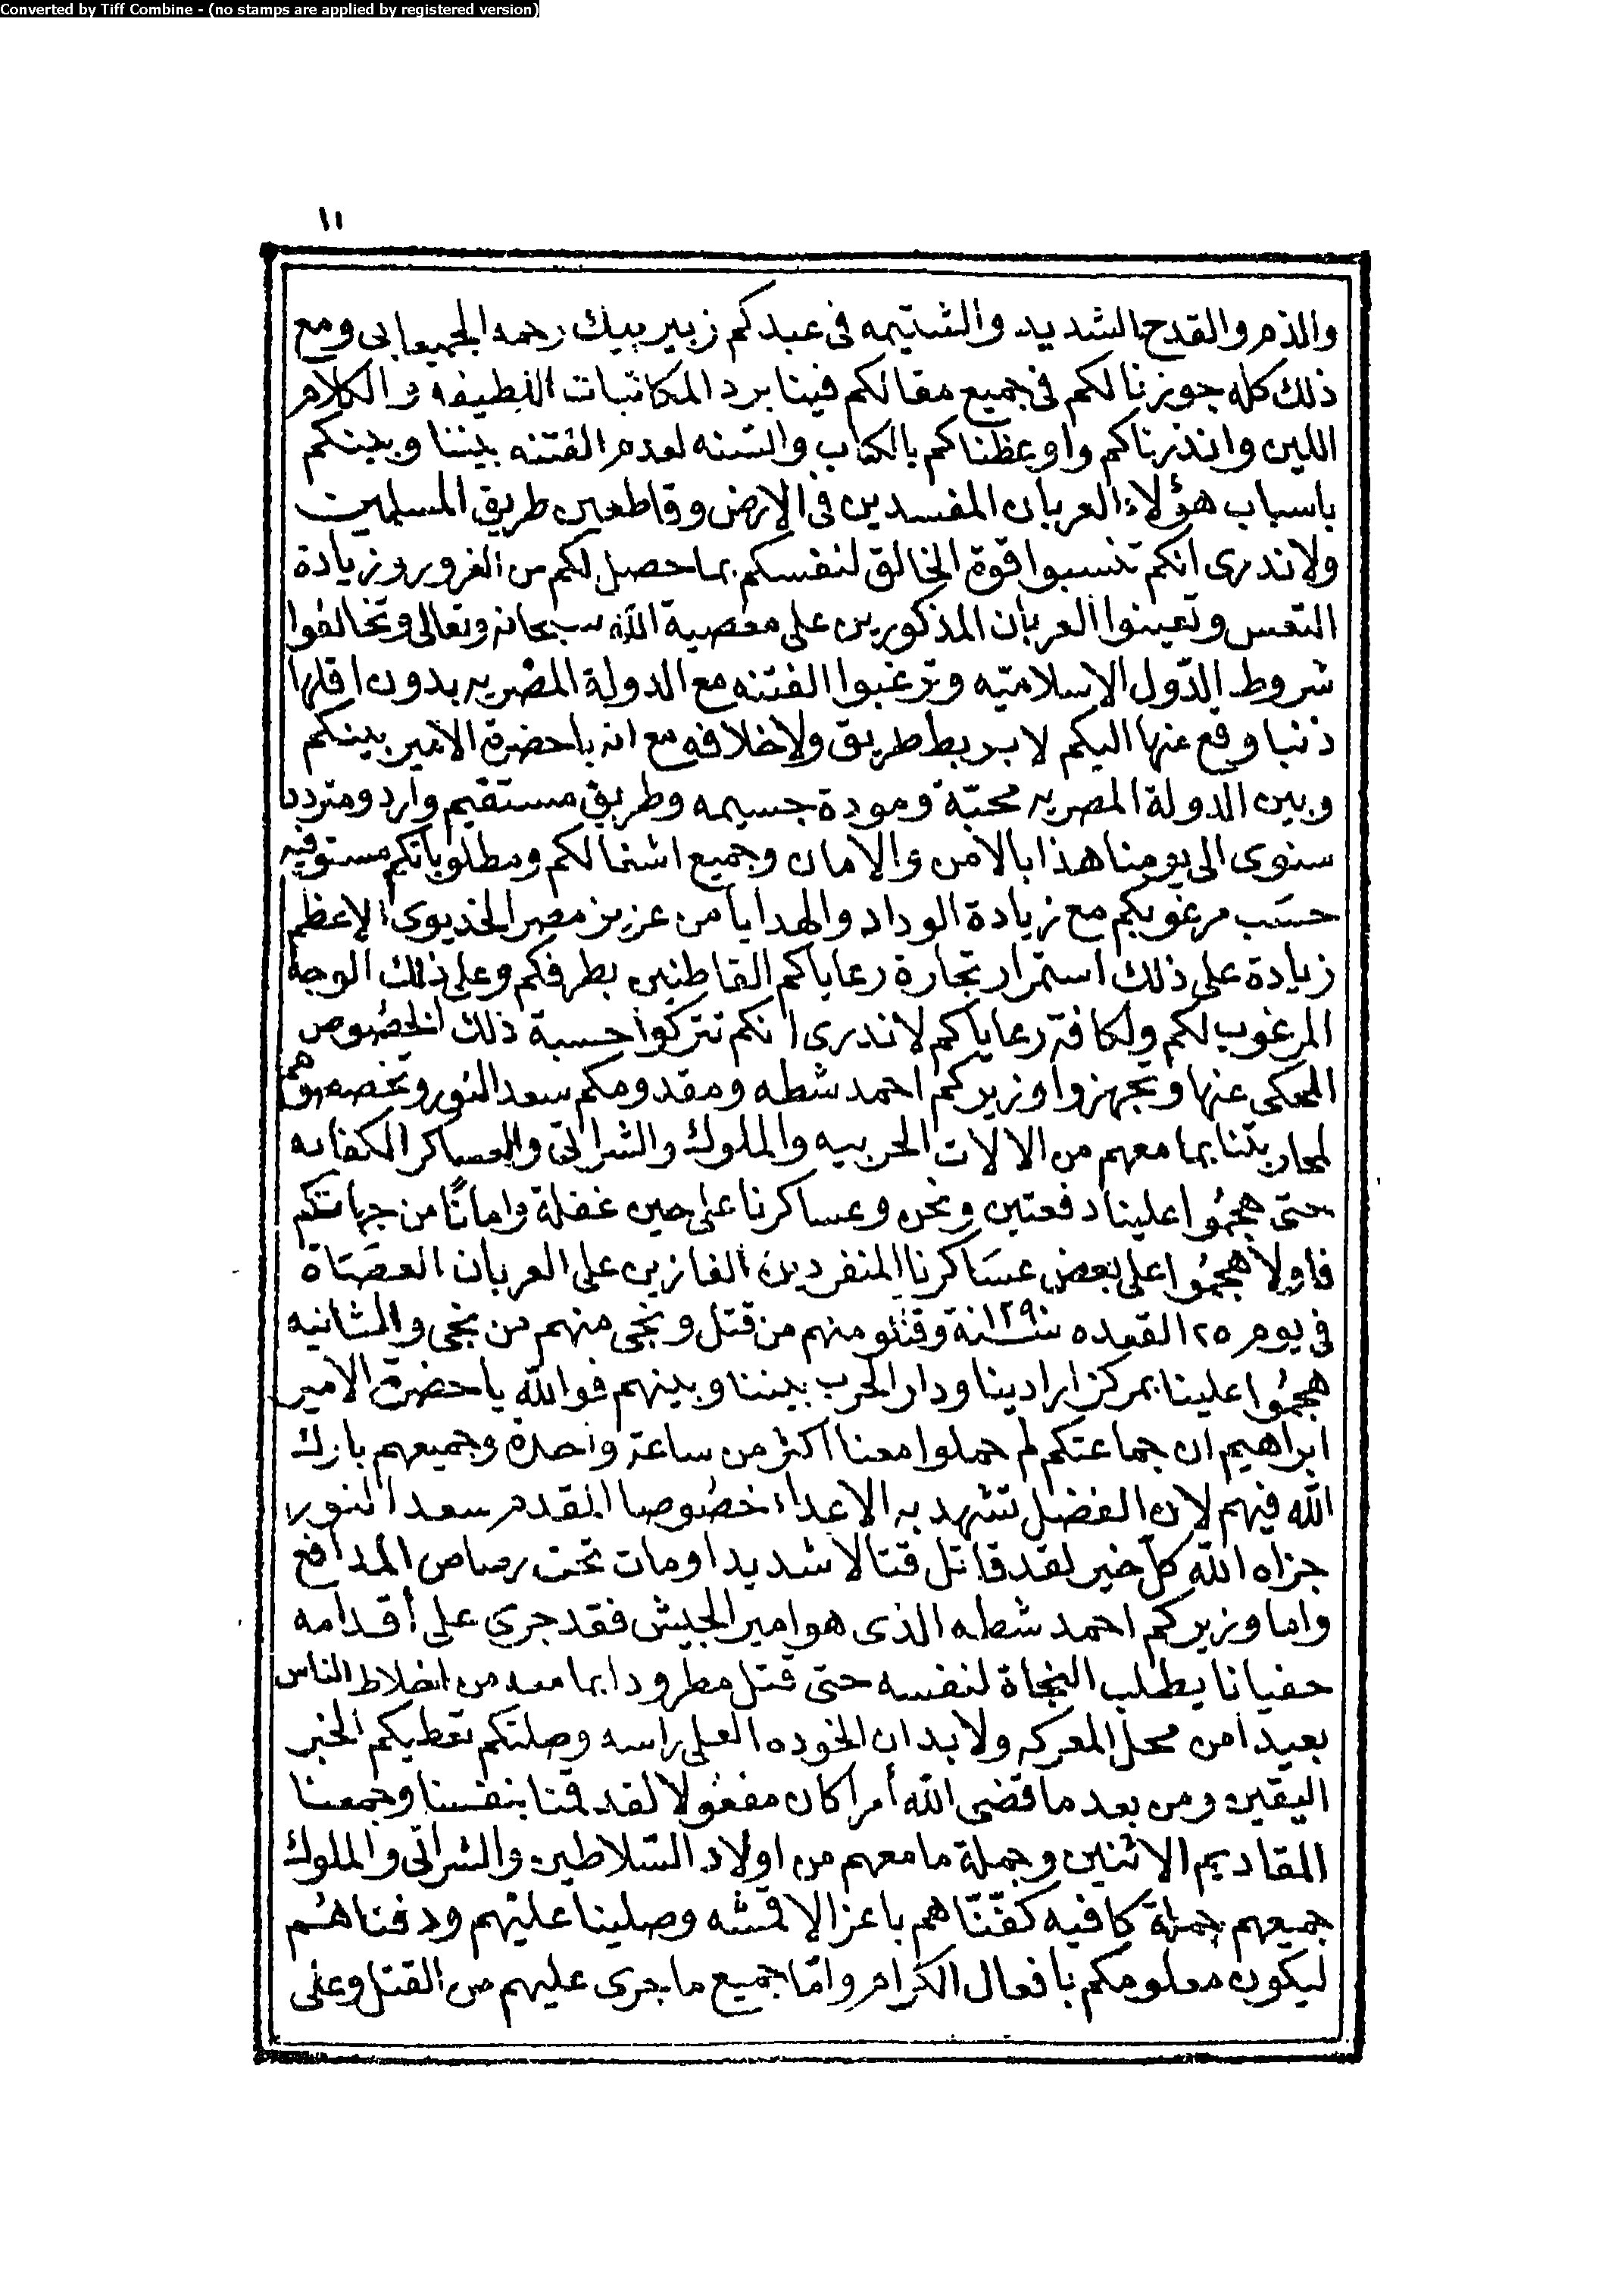 Converted by Tiff Combine - (no stamps are applied by registered version)
١١
والذم والقدح الشديد والشتيمه فى عبدكم زبير بيك رحمه الجميعابى ومع
ذلك كله جوزنا لكم فى جميع مقالكم فينا برد المكاتبات اللطيفه والكلام
اللين وانذرناكم واوعظناكم بالكتاب والسنه لعدم الفتنه بيننا وبينكم
باسباب هؤلاء العربان المفسدين فى الارض وقاطعين طريق المسلمين
ولا ندرى انكم تنسبوا قوة الخالق لنفسكم بما حصل لكم من الغرور وزيادة
النفس وتعينوا العربان المذكورين على معصية الله سبحانه وتعالى وتخالفوا
شروط الدّول الاسلاميّه وترغبوا الفتنه مع الدولة المصريه بدون اقلها
ذنبا وقع عنها اليكم لا بربط طريق ولا خلافه مع انه يا حضرة الامير بينكم
وبين الدولة المصريه محبّة ومودة جسيمه وطريق مستقيم وارد ومتردد
سنوى الى يومنا هذا بالامن والامان وجميع اشغالكم ومطلوباتكم مستوفيه
حسب مرغوبكم مع زيادة الوداد والهدايا من عزيز مصر الخديوى الاعظم
زيادة على ذلك استمرار تجارة رعاياكم القاطنين بطرفكم وعلى ذلك الوجه
المرغوب لكم ولكافة رعاياكم لا ندرى انكم تتركوا حسبة ذلك الخصوص
المحكى عنها وتجهزوا وزيركم احمد شطه ومقدومكم سعد النور وتخصصوهم
لمحاربتنا بما معهم من الالات الحربيه والملوك والشراتى والعساكر الكفايه
حتى هجمُوا علينا دفعتين ونحن وعساكرنا على حين غفلة وامانًا من جهاتكم
فاولا هجمُوا على بعض عسَاكرنا المنفردين الغازين على العربان العصَاة
فى يوم ٢٥ القعده سنة ١٢٩٠ وقتلو منهم من قتل ونجى منهم من نجى والثانيه
هجمُوا علينا بمركز ارادينا ودار الحرب بيننا وبينهم فوالله يا حضرة الامير
ابراهيم ان جماعتكم لم حملوا معنا اكثر من ساعة واحدة وجميعهم بارك
الله فيهم لان الفضل تشهد به الاعداء خصُوصا المقدم سعد النور
جزاه الله كلّ خير لقد قاتل قتالا شديدا ومات تحت رصاص المدافع
واما وزيركم احمد شطه الذى هو امير الجيش فقد جرى على أقدامه
حفيانا يطلب النجاة لنفسه حتى قتل مطرودا بما معه من اخلاط الناس
بعيدا من محل المعركه ولا بد ان الخوده العلى راسه وصلتكم تعطيكم الخبر
اليقين ومن بعد ما قضى الله أمرا كان مفعُولا لقد قمنا بنفسنا وجمعنا
المقاديم الاثنين وجملة ما معهم من اولاد السّلاطين والشراتى والملوك
جميعهم جملة كافيه كفّنّاهم باعز الاقمشه وصلينا عليهم ودفناهُم
ليكون معلومكم بافعال الكرام وامّا جميع ما جرى عليهم من القتل وعلى